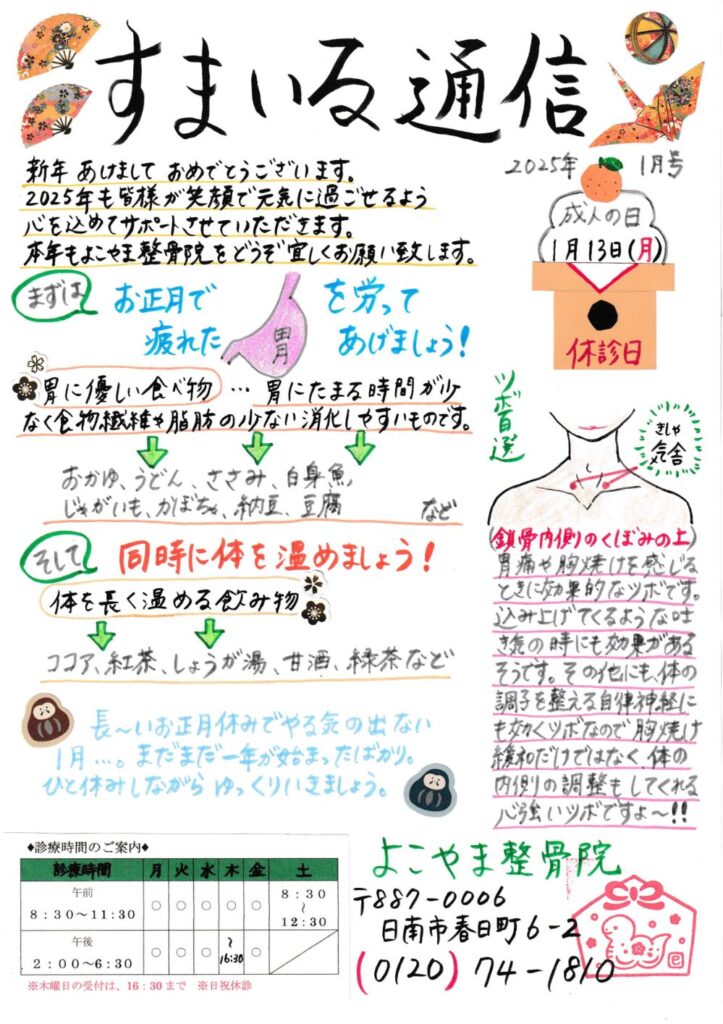 すまいる通信
2025年 1月号
新年 あけまして おめでとうございます。
2025年も皆様が笑顔で元気に過ごせるよう
心を込めてサポートさせていただきます。
本年もよこやま整骨院をどうぞ宜しくお願い致します。
成人の日
1月13日(月)
休診日
まずは お正月で
疲れた 胃 を労って
あげましょう!
胃に優しい食べ物 … 胃にたまる時間が少
なく食物繊維や脂肪の少ない消化しやすいものです。
おかゆ、うどん、ささみ、白身魚、
じゃがいも、かぼちゃ、納豆、豆腐 など
そして 同時に体を温めましょう!
体を長く温める飲み物
ココア、紅茶、しょうが湯、甘酒、緑茶など
長～いお正月休みでやる気の出ない
1月…。まだまだ一年が始まったばかり。
ひと休みしながら ゆっくりいきましょう。
ツボ百選
きしゃ
気舎
(鎖骨内側のくぼみの上)
胃痛や胸焼けを感じる
ときに効果的なツボです。
込み上げてくるような吐
き気の時にも効果がある
そうです。その他にも、体の
調子を整える自律神経に
も効くツボなので胸焼け
緩和だけではなく、体の
内側の調整もしてくれる
心強いツボですよ～!!
♦診療時間のご案内♦
診療時間 月 火 水 木 金 土
午前
8:30～11:30 ○ ○ ○ ○ ○ 8:30～12:30
午後
2:00～6:30 ○ ○ ○ ～16:30 ○
※木曜日の受付は、16:30まで ※日祝休診
よこやま整骨院
〒887-0006
日南市春日町6-2
(0120) 74-1810
巳